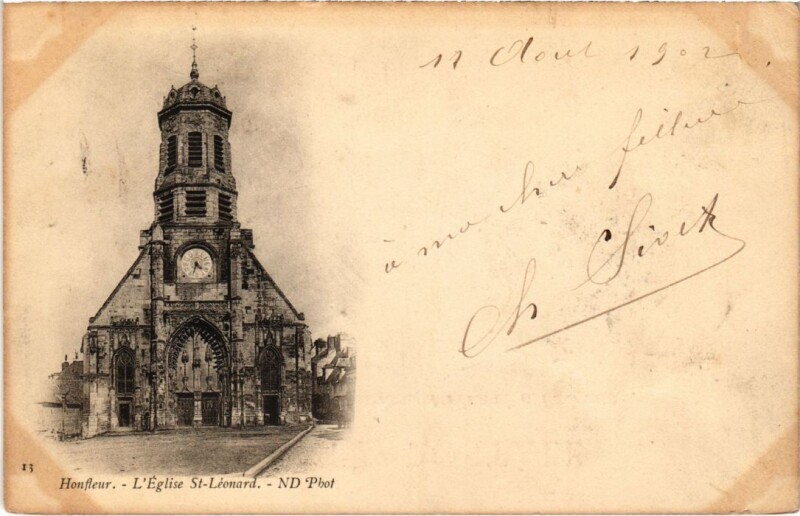 11 Aout 1902.
à ma chère filleule
Ch Sivet
13
Honfleur. - L'Église St-Léonard. - ND Phot